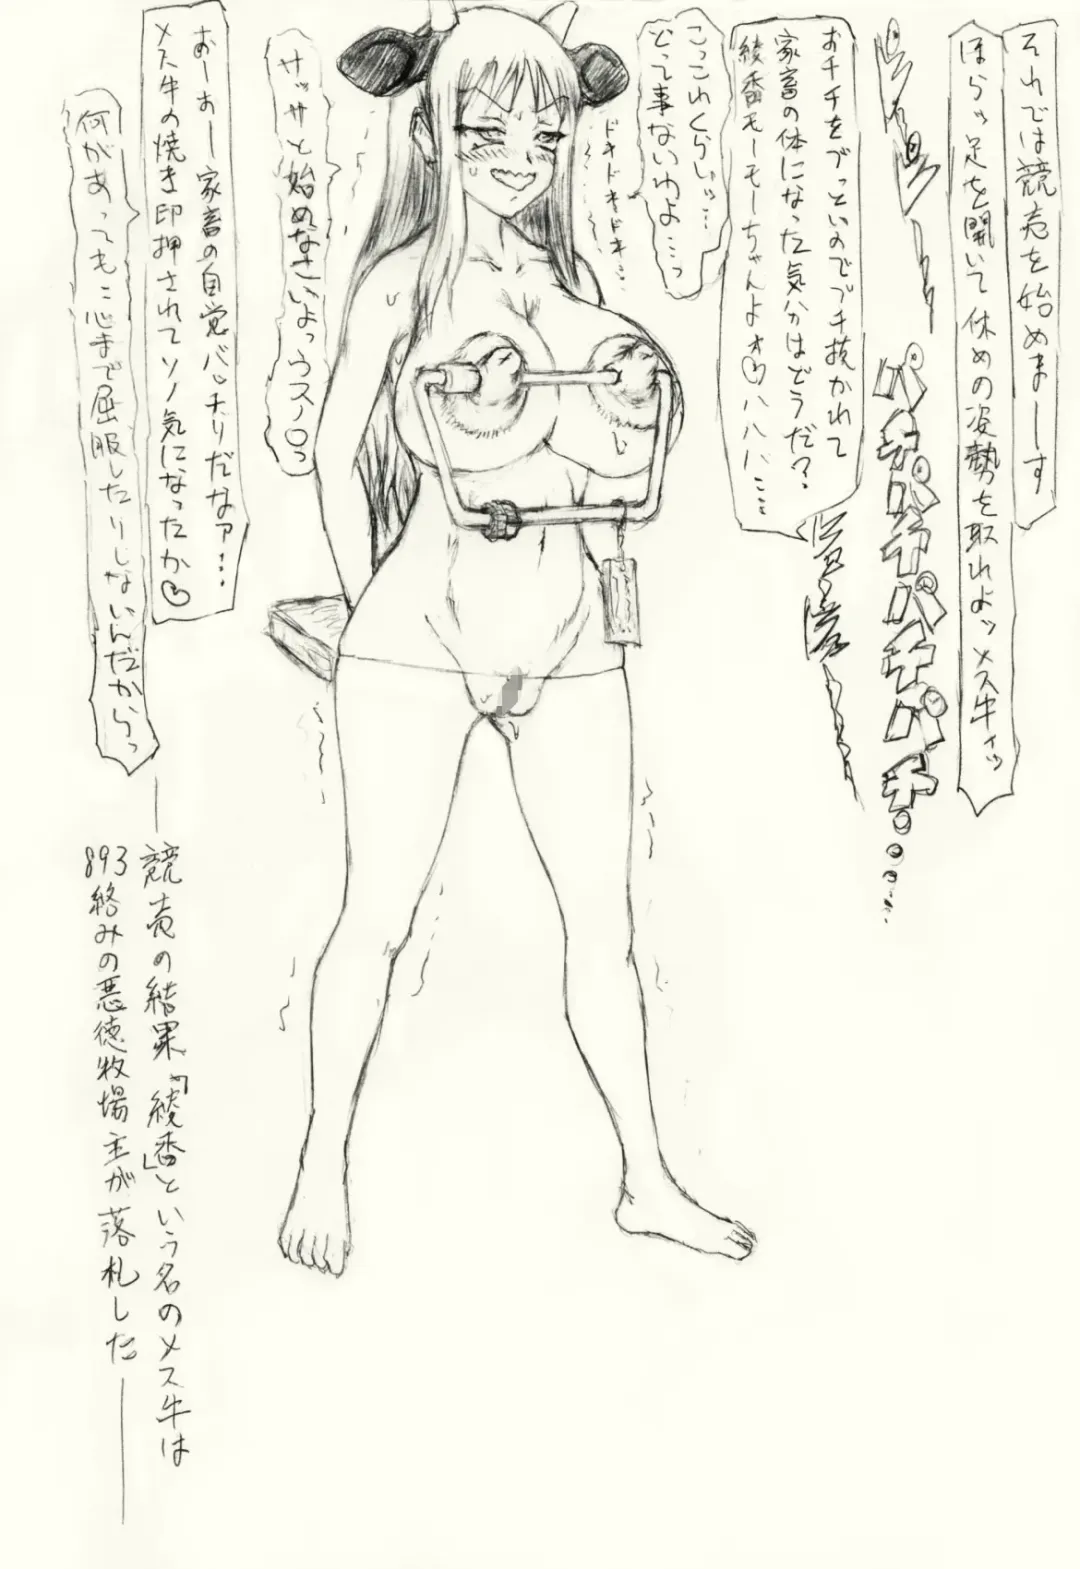 それでは競売を始めまーーす
ほらッ足を開いて休めの姿勢を取れよッメス牛ィッ
パチパチパチパチ。。。…
おチチをブっといのでブチ抜かれて
家畜の体になった気分はどうだ?
綾香モーモーちゃんよォ♡ハハハ……
こっこれくらいッ…
どって事ないわよ…っ
ドキドキドキ…
サッサと始めなさいよっウスノロっ
おーおー家畜の自覚バッチリだなァ…
メス牛の焼き印押されてソノ気になったか♡
何があっても心まで屈服したりしないんだからっ
―競売の結果「綾香」という名のメス牛は
893絡みの悪徳牧場主が落札した―